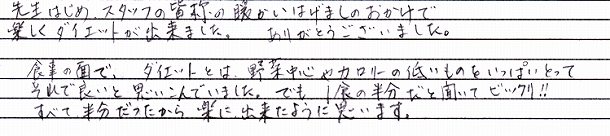 先生はじめ、スタッフの皆称の暖かいはげましのおかげで
楽しくダイエットが出来ました。 ありがとうございました。
食事の面で、ダイエットとは、野菜中心やカロリーの低いものをいっぱいとって
それで良いと思いこんでいました。でも 1食の半分だと聞いてビックリ!!
すべて半分だったから 楽に出来たように思います。